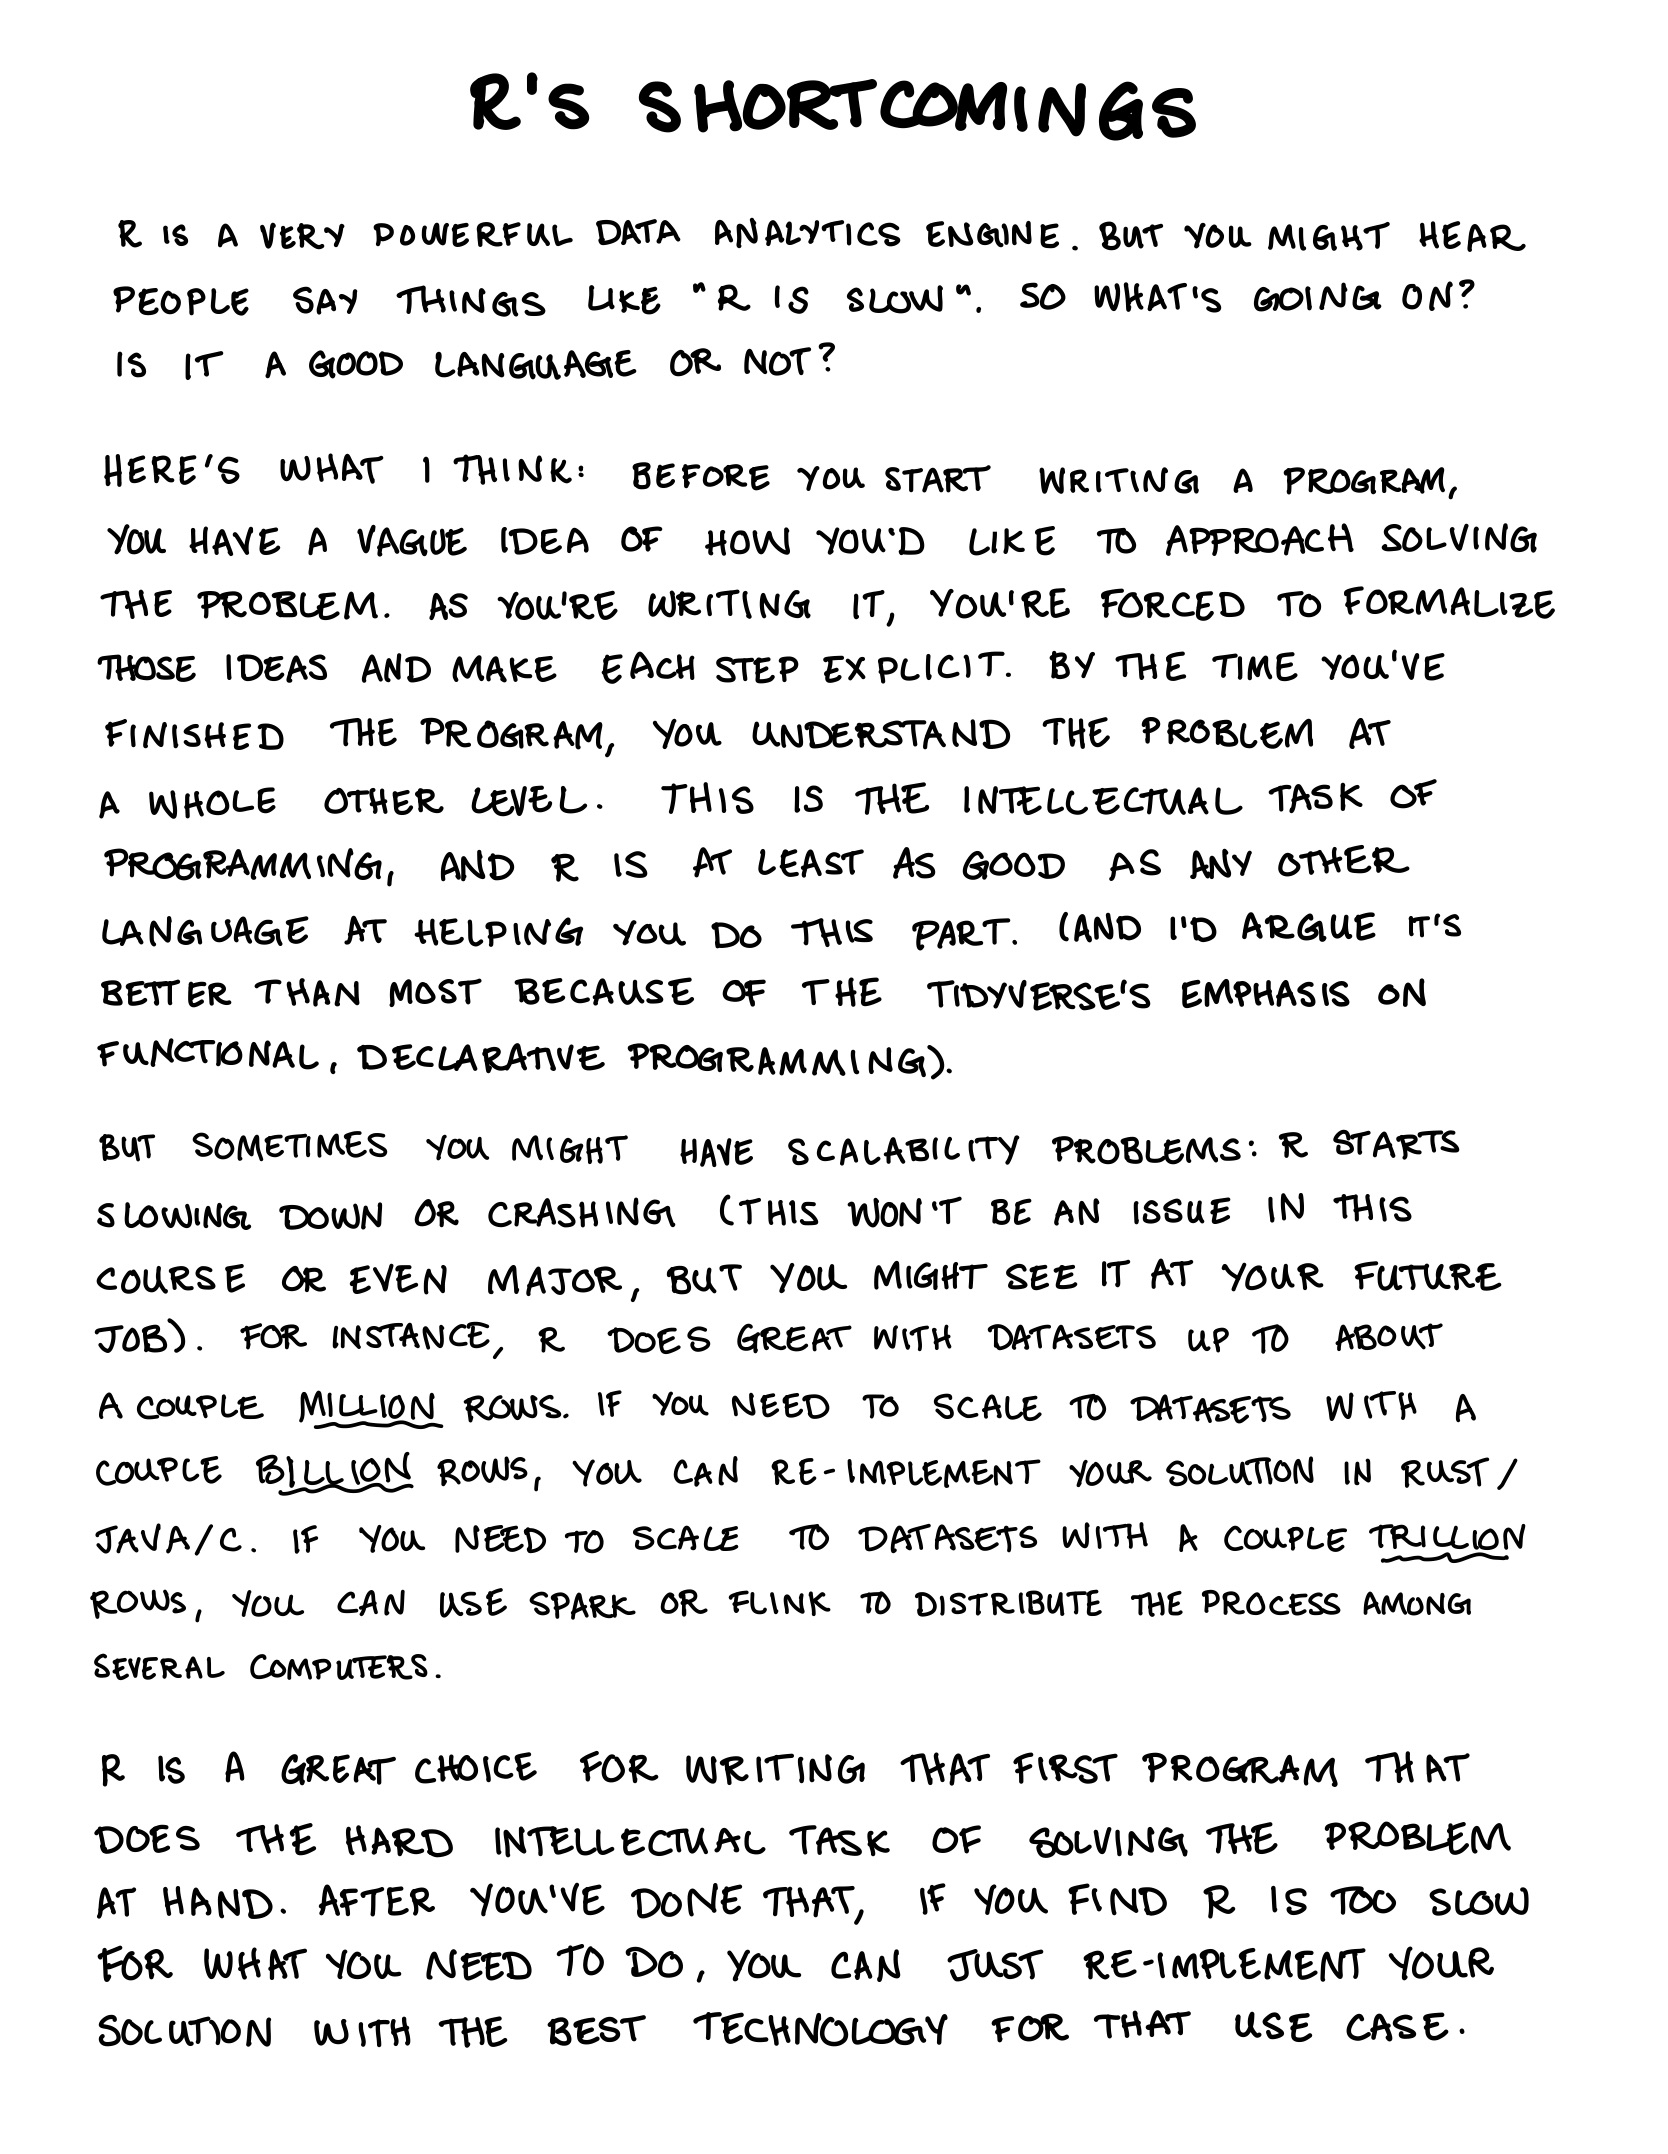 R'S SHORTCOMINGS
R IS A VERY POWERFUL DATA ANALYTICS ENGINE. BUT YOU MIGHT HEAR
PEOPLE SAY THINGS LIKE "R IS SLOW". SO WHAT'S GOING ON?
IS IT A GOOD LANGUAGE OR NOT?
HERE'S WHAT I THINK: BEFORE YOU START WRITING A PROGRAM,
YOU HAVE A VAGUE IDEA OF HOW YOU'D LIKE TO APPROACH SOLVING
THE PROBLEM. AS YOU'RE WRITING IT, YOU'RE FORCED TO FORMALIZE
THOSE IDEAS AND MAKE EACH STEP EXPLICIT. BY THE TIME YOU'VE
FINISHED THE PROGRAM, YOU UNDERSTAND THE PROBLEM AT
A WHOLE OTHER LEVEL. THIS IS THE INTELLECTUAL TASK OF
PROGRAMMING, AND R IS AT LEAST AS GOOD AS ANY OTHER
LANGUAGE AT HELPING YOU DO THIS PART. (AND I'D ARGUE IT'S
BETTER THAN MOST BECAUSE OF THE TIDYVERSE'S EMPHASIS ON
FUNCTIONAL, DECLARATIVE PROGRAMMING).
BUT SOMETIMES YOU MIGHT HAVE SCALABILITY PROBLEMS: R STARTS
SLOWING DOWN OR CRASHING (THIS WON'T BE AN ISSUE IN THIS
COURSE OR EVEN MAJOR, BUT YOU MIGHT SEE IT AT YOUR FUTURE
JOB). FOR INSTANCE, R DOES GREAT WITH DATASETS UP TO ABOUT
A COUPLE MILLION ROWS. IF YOU NEED TO SCALE TO DATASETS WITH A
COUPLE BILLION ROWS, YOU CAN RE-IMPLEMENT YOUR SOLUTION IN RUST/
JAVA/C. IF YOU NEED TO SCALE TO DATASETS WITH A COUPLE TRILLION
ROWS, YOU CAN USE SPARK OR FLINK TO DISTRIBUTE THE PROCESS AMONG
SEVERAL COMPUTERS.
R IS A GREAT CHOICE FOR WRITING THAT FIRST PROGRAM THAT
DOES THE HARD INTELLECTUAL TASK OF SOLVING THE PROBLEM
AT HAND. AFTER YOU'VE DONE THAT, IF YOU FIND R IS TOO SLOW
FOR WHAT YOU NEED TO DO, YOU CAN JUST RE-IMPLEMENT YOUR
SOLUTION WITH THE BEST TECHNOLOGY FOR THAT USE CASE.